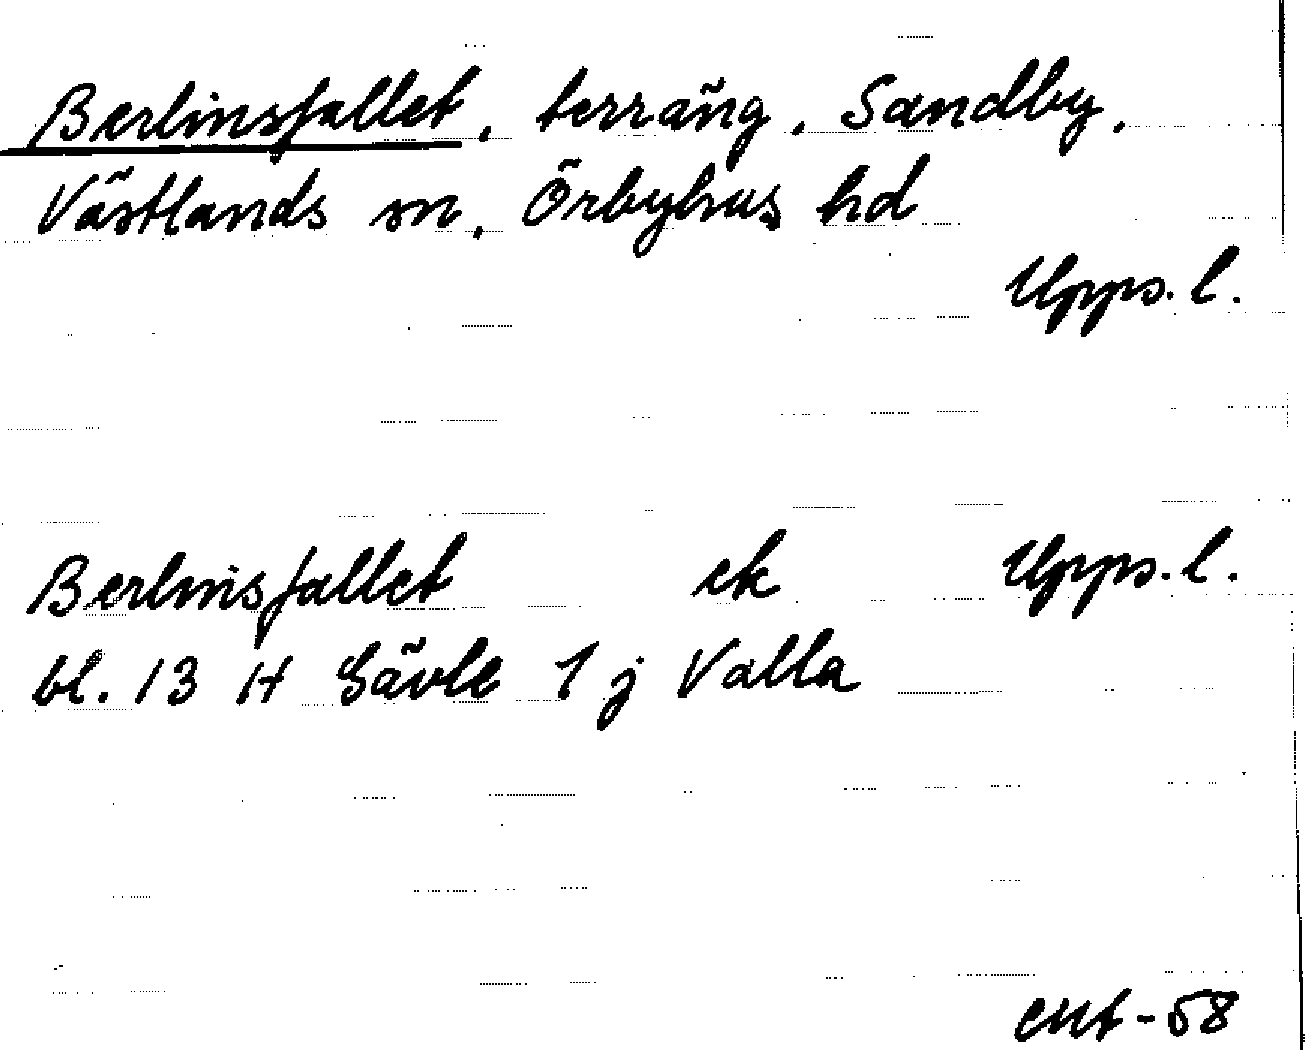 Berlinsfallet, terräng, Sandby,
Västlands sn, Örbyhus hd
Upps. l.
Berlinsfallet ek Upps. l.
bl. 13 H Gävle 1 j Valla
-58